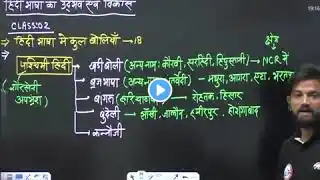 हिंदी भाषा का उद्भव एवं विकास
CLASS:02
→ हिंदी भाषा में कुल बोलियाँ → 18
पश्चिमी हिंदी
(शौरसेनी अपभ्रंश)
→ खड़ी बोली (अन्य नाम: कौरवी, सरहिंदी, हिंदुस्तानी) → NCR में
→ ब्रजभाषा (अन्य नाम - ) - मथुरा, आगरा, एटा, भरतपुर
→ बांगरू (हरियाणवी) → रोहतक, हिसार
→ बुंदेली → झाँसी, जालौन, हमीरपुर, होशंगाबाद
→ कन्नौजी